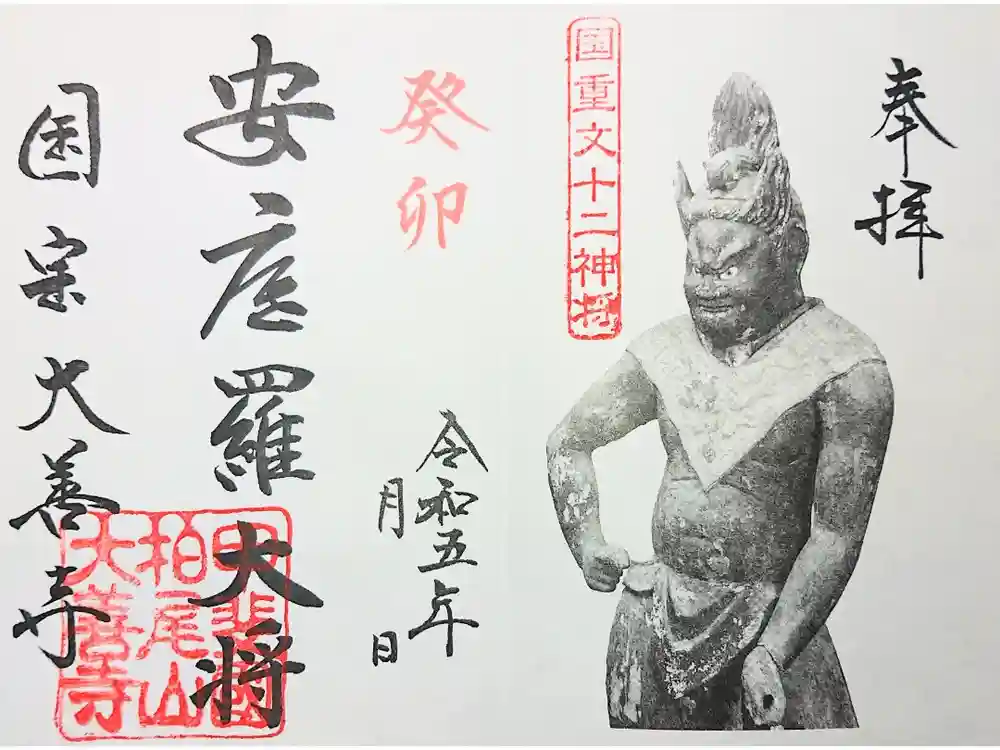 奉拝
国重文十二神将
癸卯
令和五年
月 日
安底羅大将
国宝大善寺
甲斐國
柏尾山
大善寺